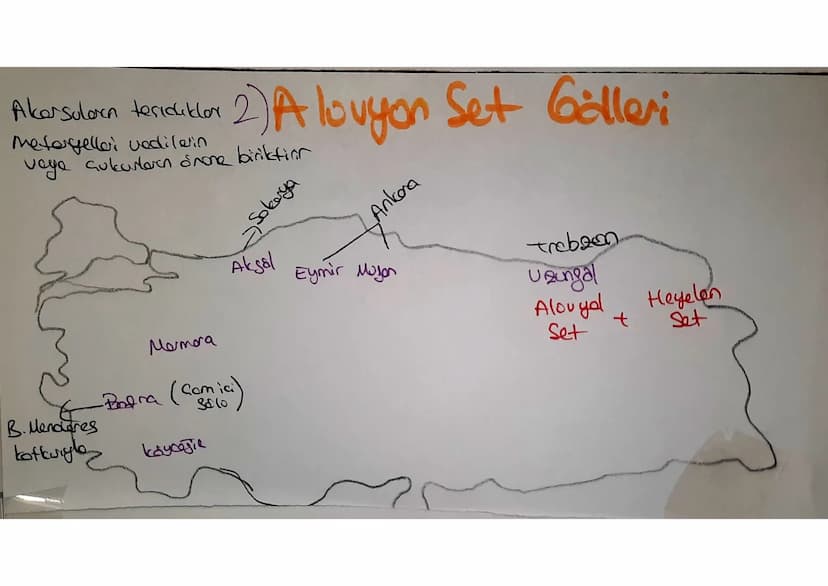 2) Alovyon Set Gölleri
Akarsuların taşıdıkları
materyelleri vadilerin
veya çukurların önüne biriktirir
Sakarya
Ankara
Akgöl
Eymir
Mogan
trabzon
Uzungöl
Alovyal
Set
+
Heyelan
Set
Marmara
Bafra (Camiçi
gölü)
B. Menderes
katkısıyla
köyceğiz